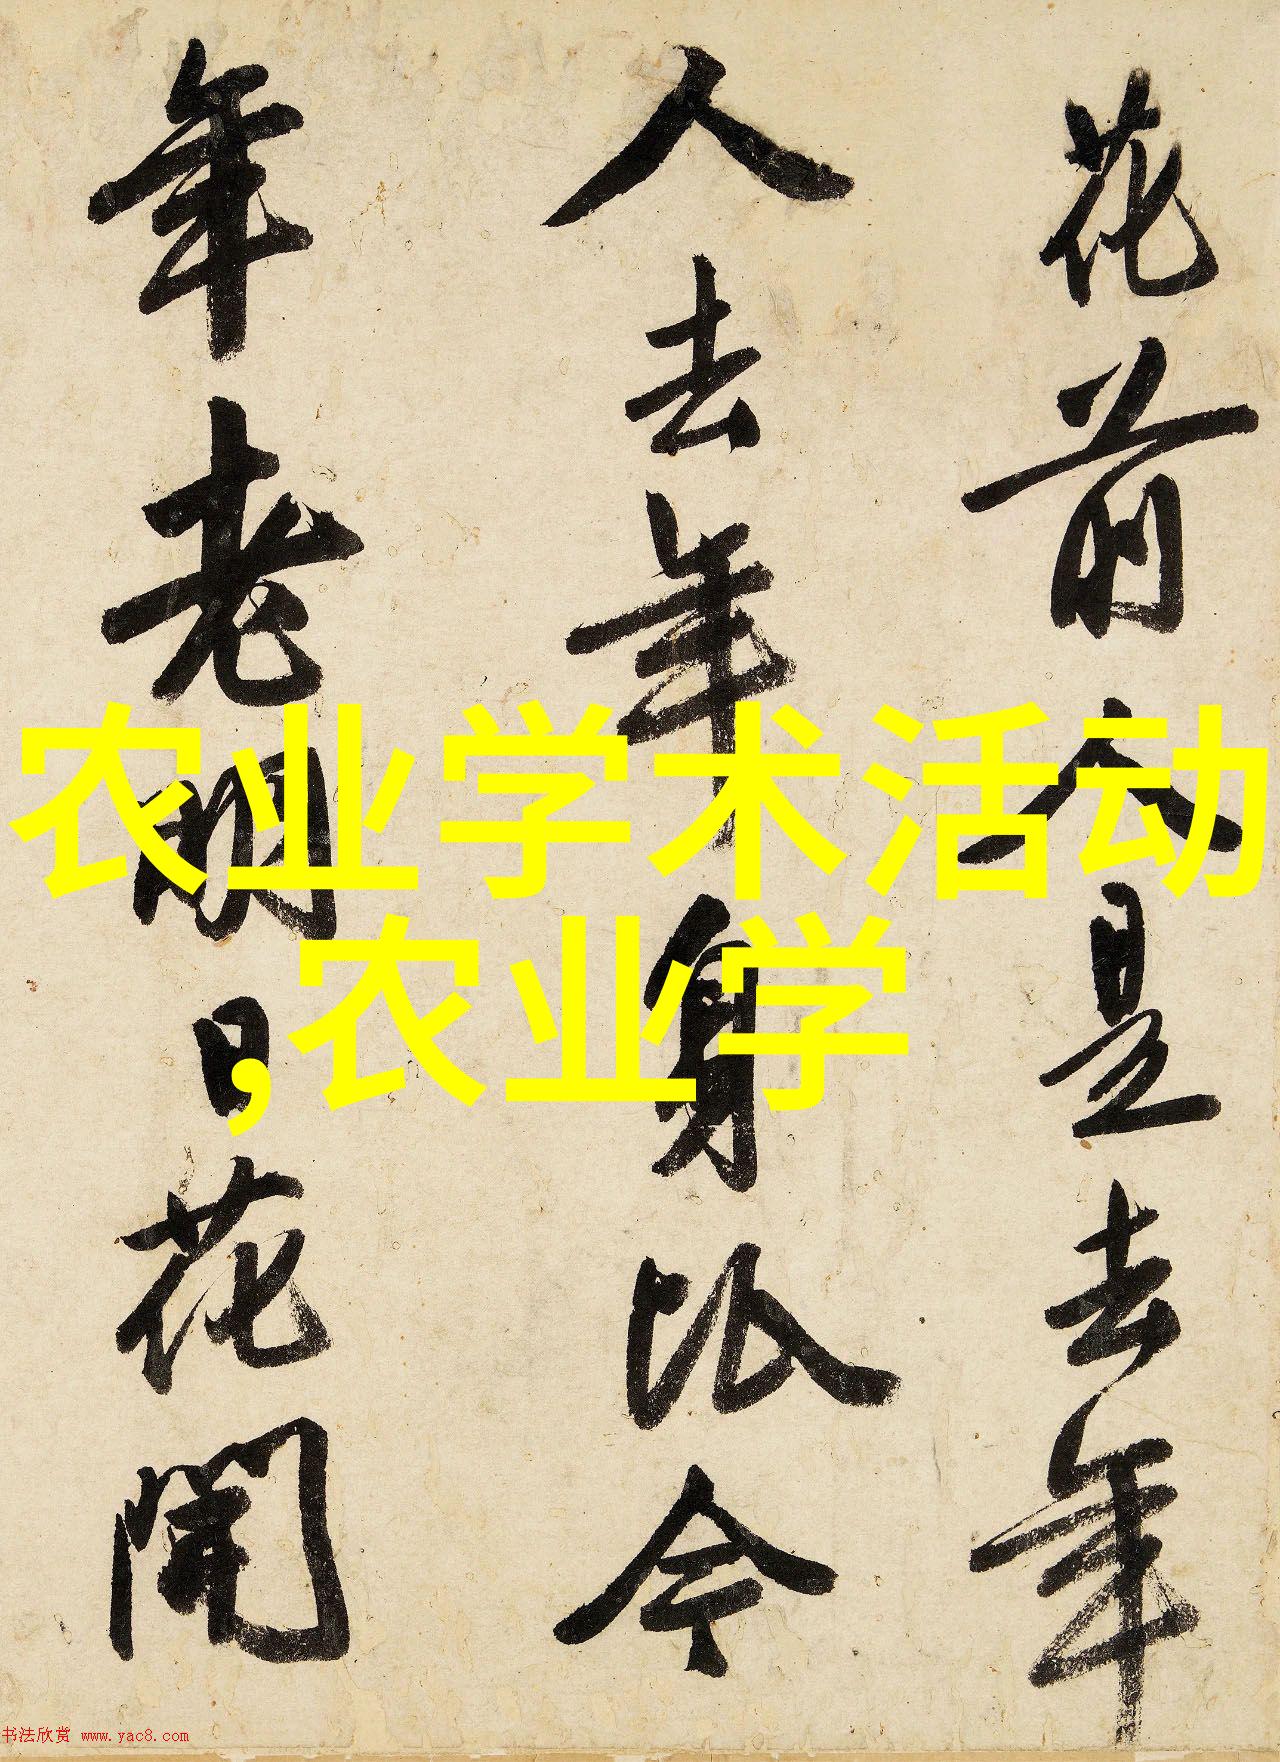 花前人是去年
人去年身比今
年老明日花開
农业学术活动
,农业学
书法欣赏 www.yac8.com